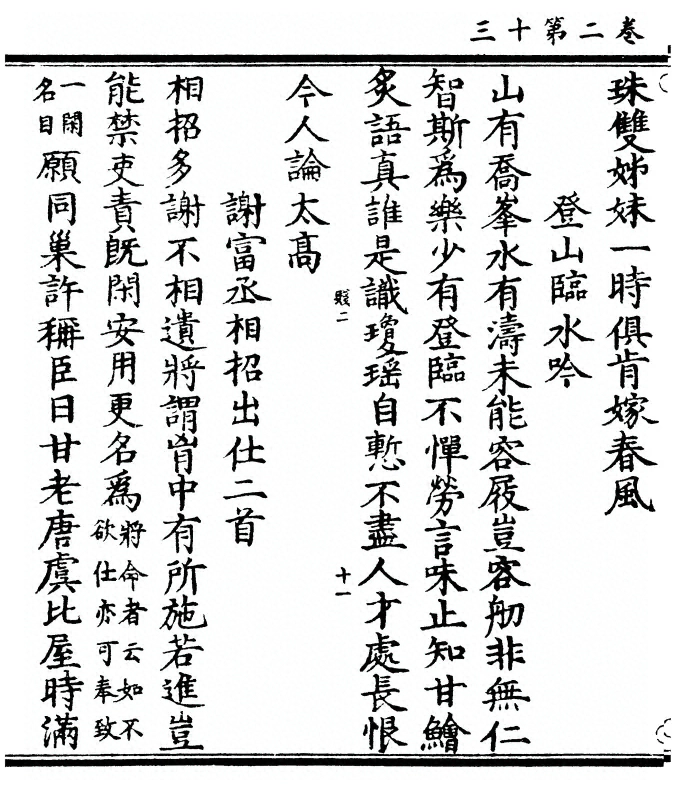 三十第二卷
珠雙姊妹一時俱肯嫁春風
登山臨水吟
山有喬峯水有濤未能容屐豈容舠非無仁
智斯爲樂少有登臨不憚勞言味止知甘鱠
炙語真誰是識瓊瑶自慙不盡人才處長恨
䝿二
十一
今人論太高
謝富丞相招出仕二首
相招多謝不相遺將謂胷中有所施若進豈
能禁吏責旣閑安用更名爲將命者云如不
欲仕亦可奉致
一閑
名目願同巢許稱臣日甘老唐虞比屋時滿